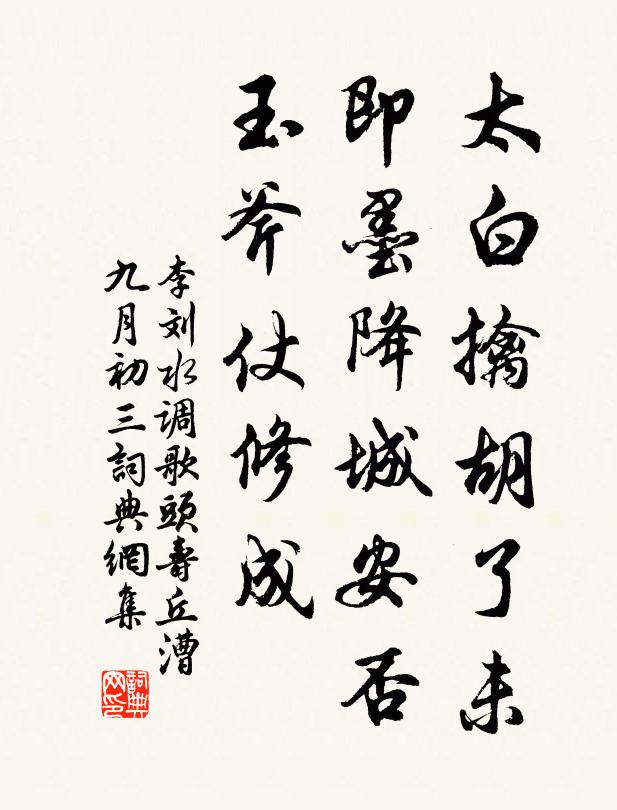 太白擒胡了未
即墨降城安否
玉斧仗修成
李刘水调歌頭壽丘漕
九月初三詞典網集
詞典网印